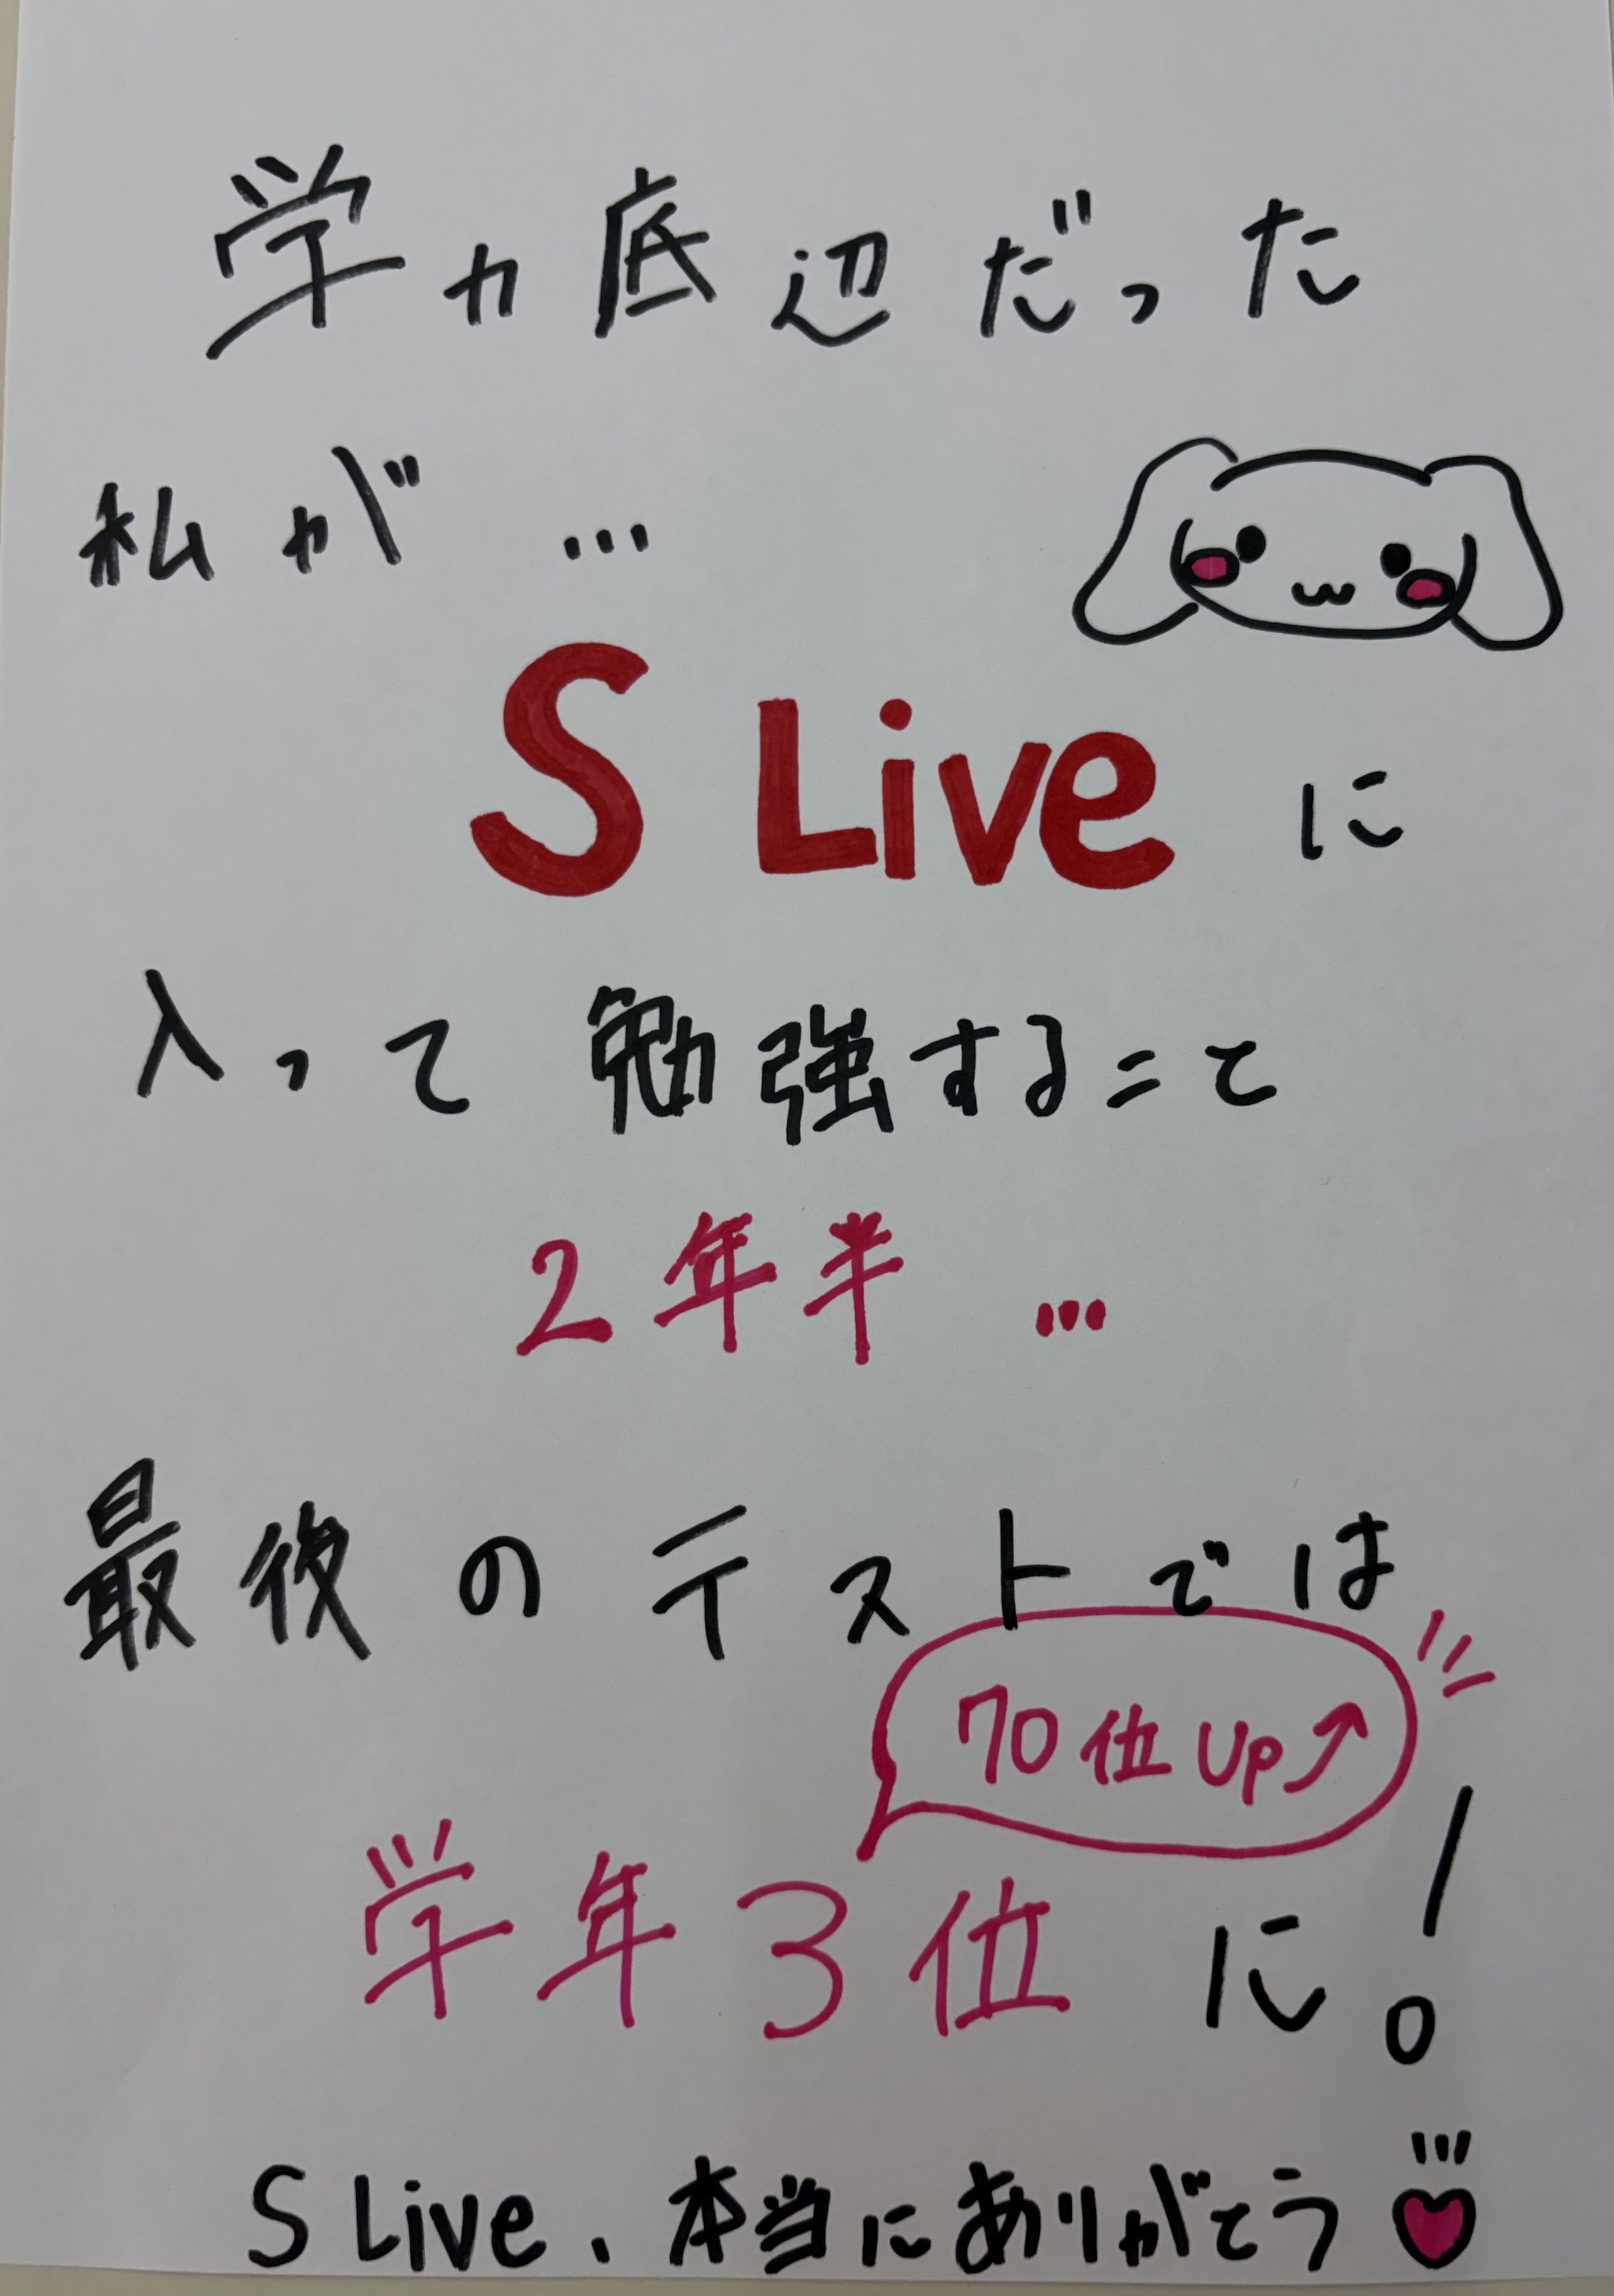 学力底辺だった
私が…
S Liveに
入って勉強すること
2年半…
最後のテストでは
70位Up↗
学年3位に!
S Live、本当にありがとう♡